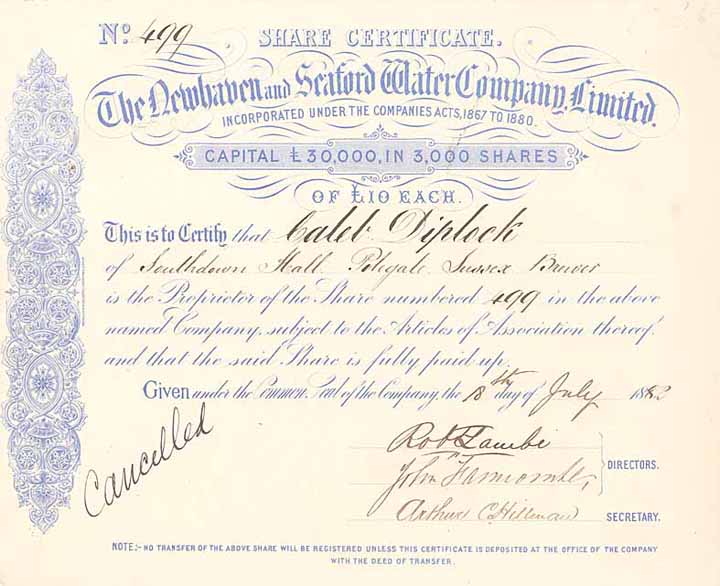 No. 499 SHARE CERTIFICATE.
The Newhaven and Seaford Water Company, Limited.
INCORPORATED UNDER THE COMPANIES ACTS, 1867 TO 1880.
CAPITAL £30,000, IN 3,000 SHARES
OF £10 EACH.
This is to Certify that Caleb Diplock
of Southdown Hall Polegate Sussex Brewer
is the Proprietor of the Share numbered 499 in the above
named Company, subject to the Articles of Association thereof,
and that the said Share is fully paid up.
Given under the Common Seal of the Company, the 18th day of July 1882
Cancelled
Robt Lambe
John
DIRECTORS.
Arthur C. Hillman
SECRETARY.
NOTE:- NO TRANSFER OF THE ABOVE SHARE WILL BE REGISTERED UNLESS THIS CERTIFICATE IS DEPOSITED AT THE OFFICE OF THE COMPANY
WITH THE DEED OF TRANSFER.